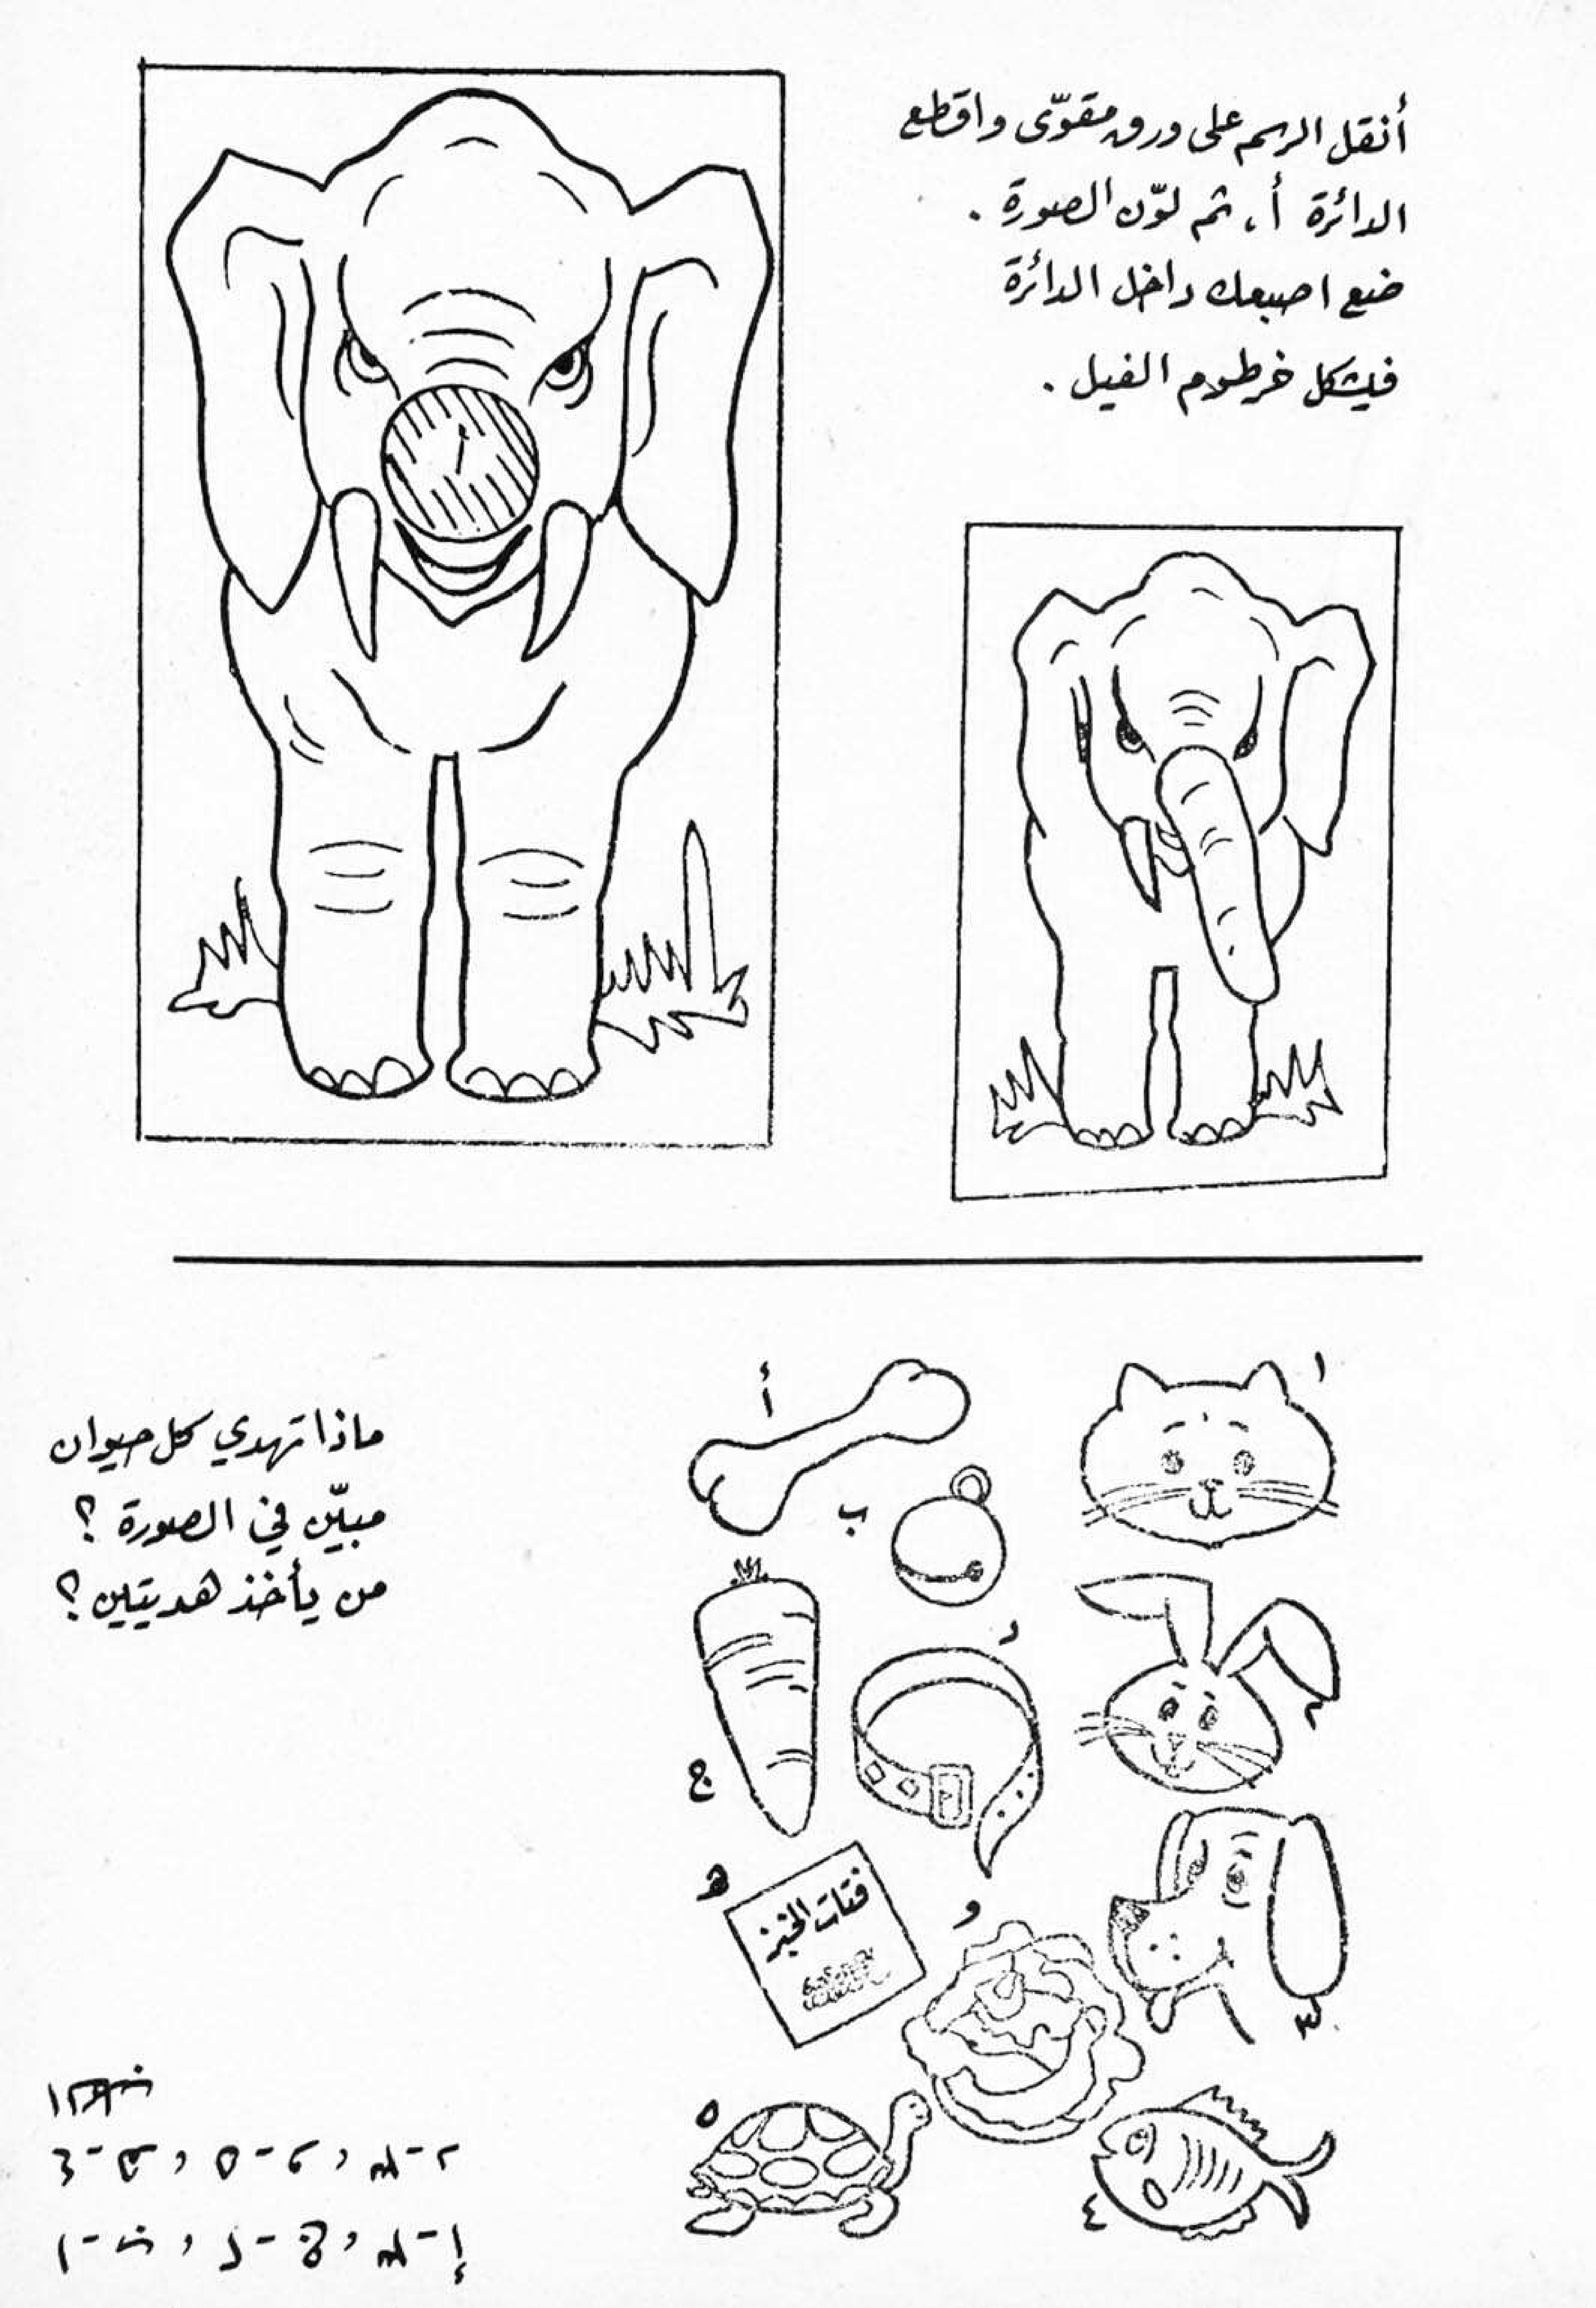 أنقل الرسم على ورق مقوّى واقطع
الدائرة أ، ثم لوّن الصورة .
ضع اصبعك داخل الدائرة
فيشكل خرطوم الفيل .
أ
ماذا تهدي كل حيوان
مبيّن في الصورة ؟
من يأخذ هديتين ؟
١
أ
ب
٢
د
ج
٣
هـ
فتات الخبز
و
٤
٥
١-ب ، ٢-ج ، ٣-أ
٤-هـ ، ٥-و ، ٣-د